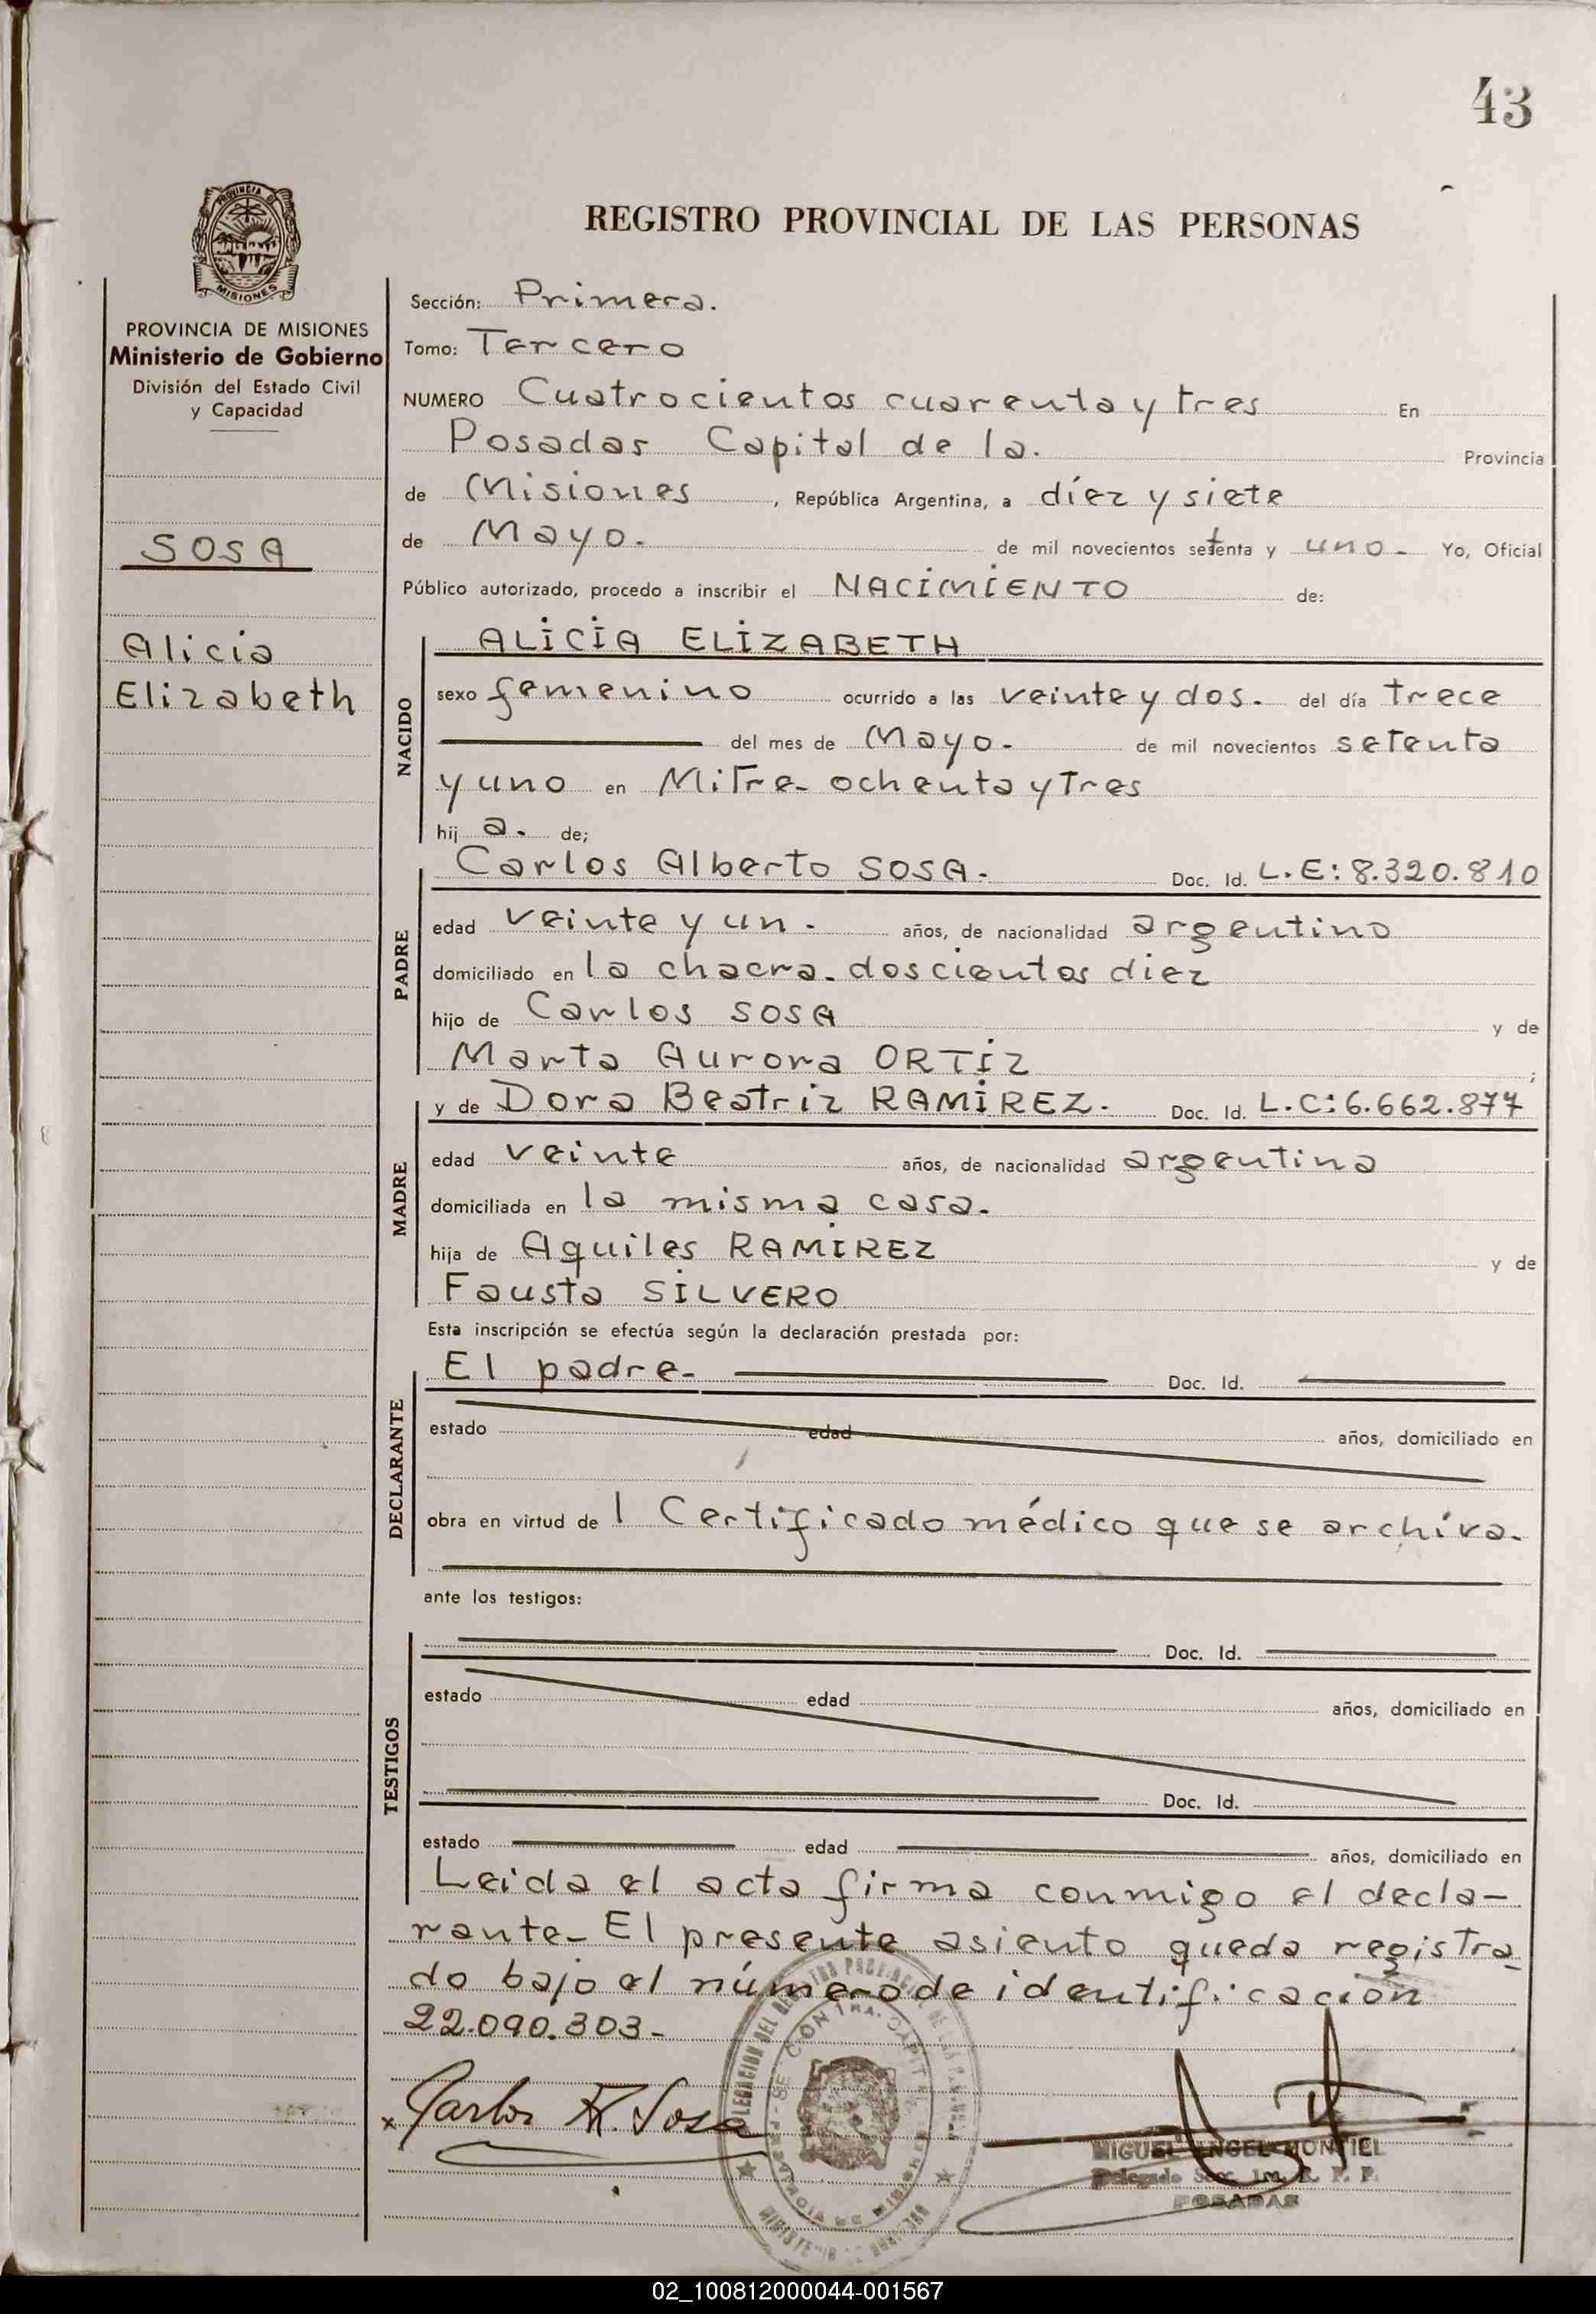 43
REGISTRO PROVINCIAL DE LAS PERSONAS
PROVINCIA DE
MISIONES
PROVINCIA DE MISIONES
Ministerio de Gobierno
División del Estado Civil
y Capacidad
SOSA
Alicia
Elizabeth
Sección: Primera.
Tomo: Tercero
NUMERO Cuatrocientos cuarenta y tres En
Posadas Capital de la. Provincia
de Misiones, República Argentina, a diez y siete
de Mayo. de mil novecientos setenta y uno- Yo, Oficial
Público autorizado, procedo a inscribir el NACIMIENTO de:
NACIDO
ALICIA ELIZABETH
sexo femenino ocurrido a las veinte y dos. del día trece
del mes de Mayo. de mil novecientos setenta
y uno en Mitre ochenta y tres
hij a. de;
PADRE
Carlos Alberto SOSA. Doc. Id. L.E: 8.320.810
edad veinte y un. años, de nacionalidad argentino
domiciliado en la chacra doscientos diez
hijo de Carlos SOSA y de
Marta Aurora ORTIZ ;
MADRE
y de Dora Beatriz RAMIREZ. Doc. Id. L.C: 6.662.877
edad veinte años, de nacionalidad argentina
domiciliada en la misma casa.
hija de Aquiles RAMIREZ y de
Fausta SILVERO
Esta inscripción se efectúa según la declaración prestada por:
DECLARANTE
El padre- Doc. Id.
estado edad años, domiciliado en
obra en virtud de l Certificado médico que se archiva.
ante los testigos:
TESTIGOS
Doc. Id.
estado edad años, domiciliado en
Doc. Id.
estado edad años, domiciliado en
Leida el acta firma conmigo el decla-
rante- El presente asiento queda registra
do bajo el número de identificación
22.090.303-
x Carlos A. Sosa
MIGUEL ANGEL MONTIEL
Delegado R. P. P.
POSADAS
02_100812000044-001567